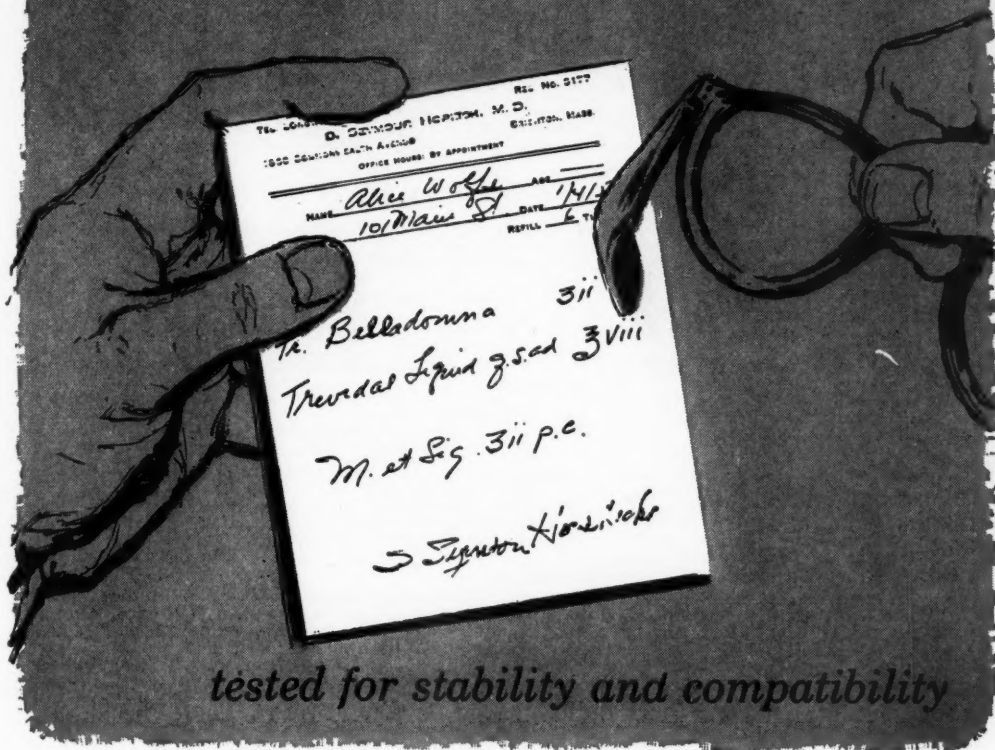 REG. NO. 3177
TEL. LONG
D. SEYMOUR M. D.
COMMONWEALTH AVENUE BRIGHTON, MASS.
OFFICE HOURS: BY APPOINTMENT
NAME Alice Wolfe AGE
101 Main St. DATE 1/4/5
REFILL 6 T
Tr. Belladonna ʒii
Trevidal Liquid q.s.ad ℥viii
M. et Sig. ʒii p.c.
tested for stability and compatibility